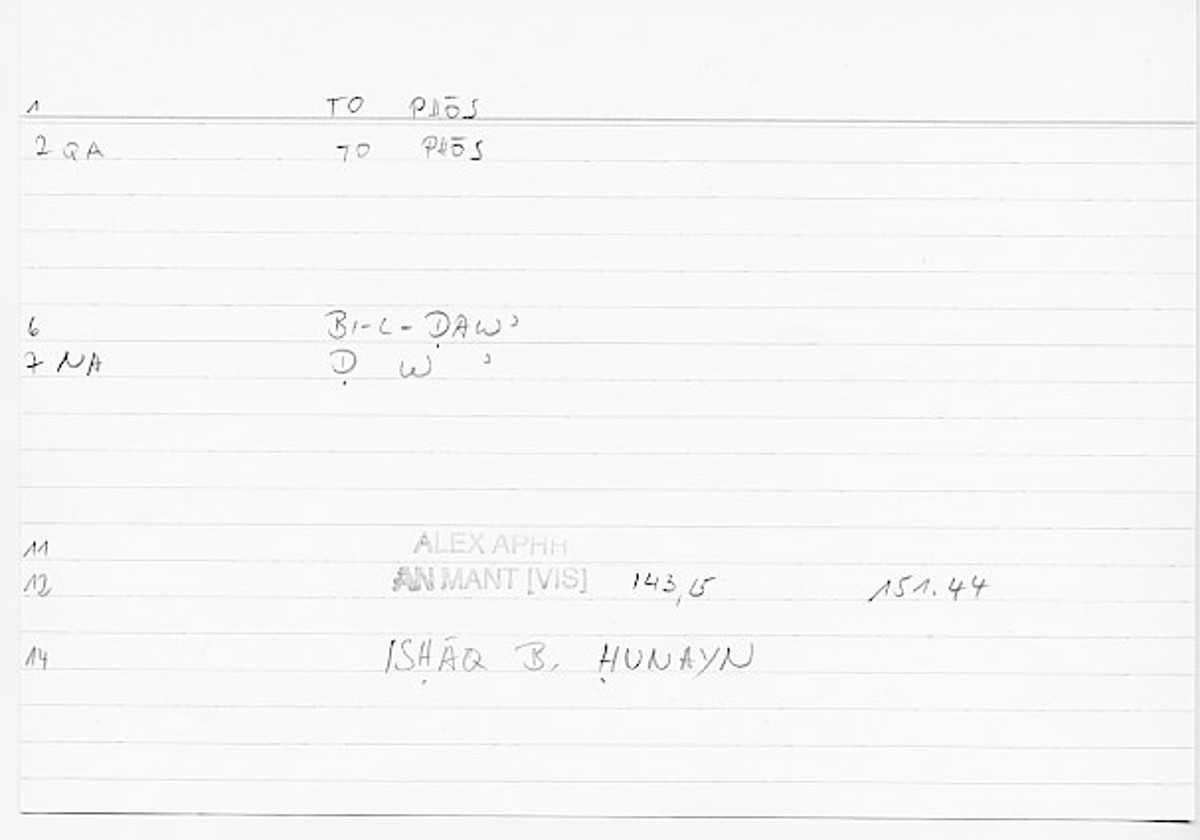 1 TO PHŌS
2 QA TO PHŌS
6 BI-L-ḌAWʾ
7 NA Ḍ W ʾ
11 ALEX APHR
12 AN MANT [VIS] 143,15 151.44
14 ISḤĀQ B. ḤUNAYN